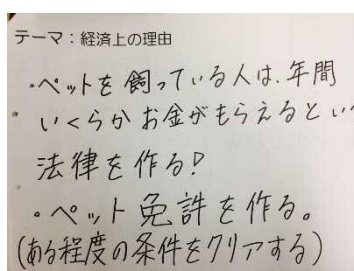 テーマ：経済上の理由
・ペットを飼っている人は、年間
いくらかお金がもらえるとい
法律を作る!
・ペット免許を作る。
(ある程度の条件をクリアする)